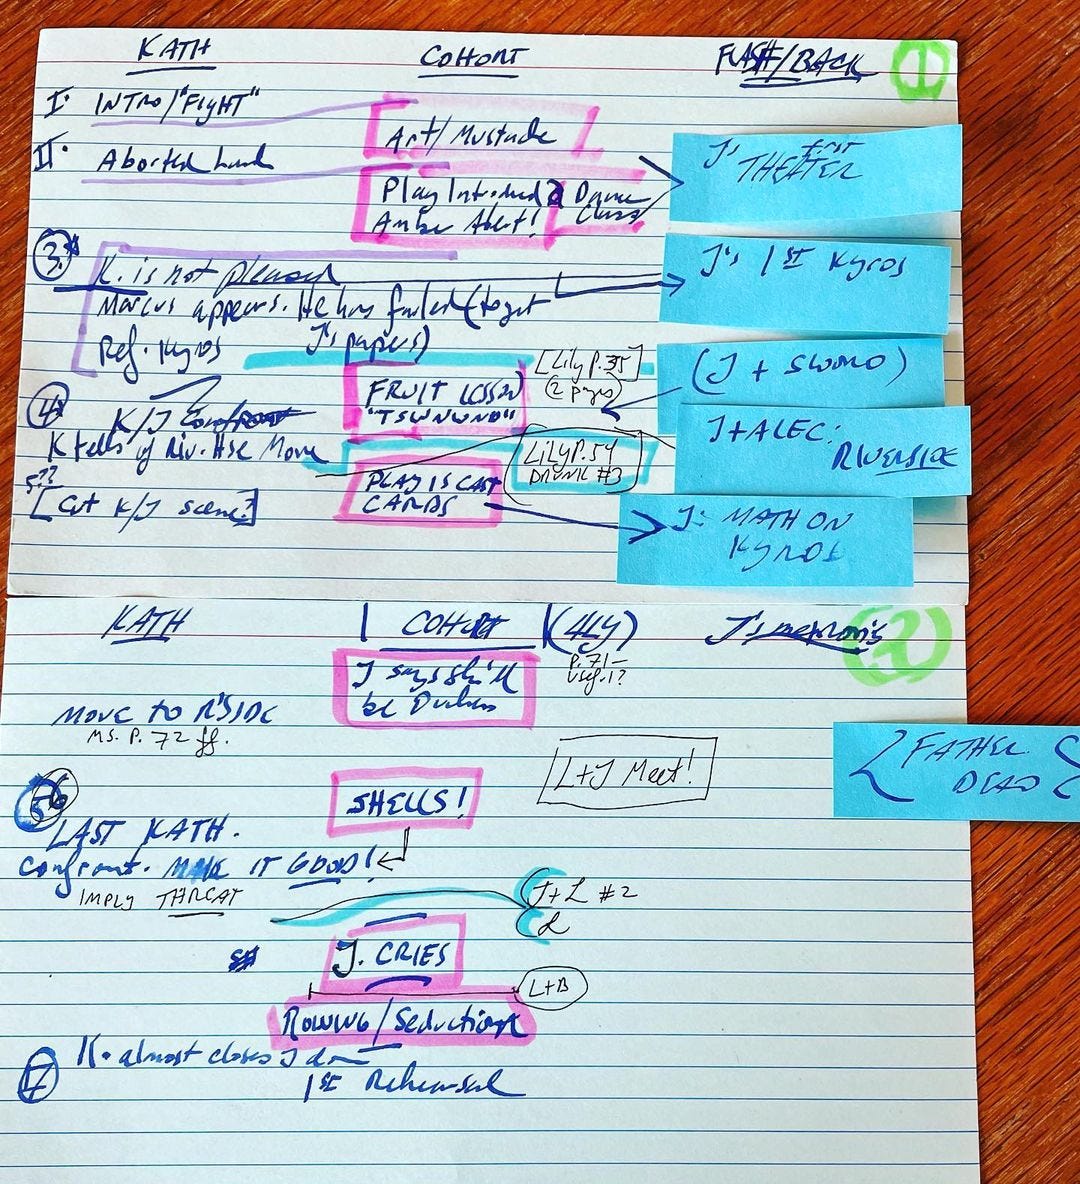 KATH
COHORT
FLASH/BACK
1
I. INTRO/"FIGHT"
Art/Mustache
II.
J's first
THEATER
Play Introduced
Dance
Class
Amber Alert!
3.
K. is not pleased
J's 1ST Kyros
Marcus appears. He has failed (to get
J's papers)
Ref. Kyros
[Lily P. 35]
(2 pages)
(J + SWORD)
FRUIT LESSON
"TSWNWND"
4.
K/J
K tells of Riv. Hse Move
LILY P. 54
DRUNK #3
J+ALEC:
RIVERSIDE
5??
[Cut K/J scene?]
PLAY IS CAST
CARDS
J: MATH ON
KYROS
KATH
COHORT
J's memories
2
P. 71-
J says she'll
be
MOVE TO R'SIDE
MS. P. 72 ff.
L+J Meet!
FATHER
DEAD
6
SHELLS!
LAST KATH.
Confront. MAKE IT GOOD!
IMPLY THREAT
J+L #2
L
J. CRIES
L+B
ROWING/Seduction
7
K. almost closes J down
1ST Rehearsal